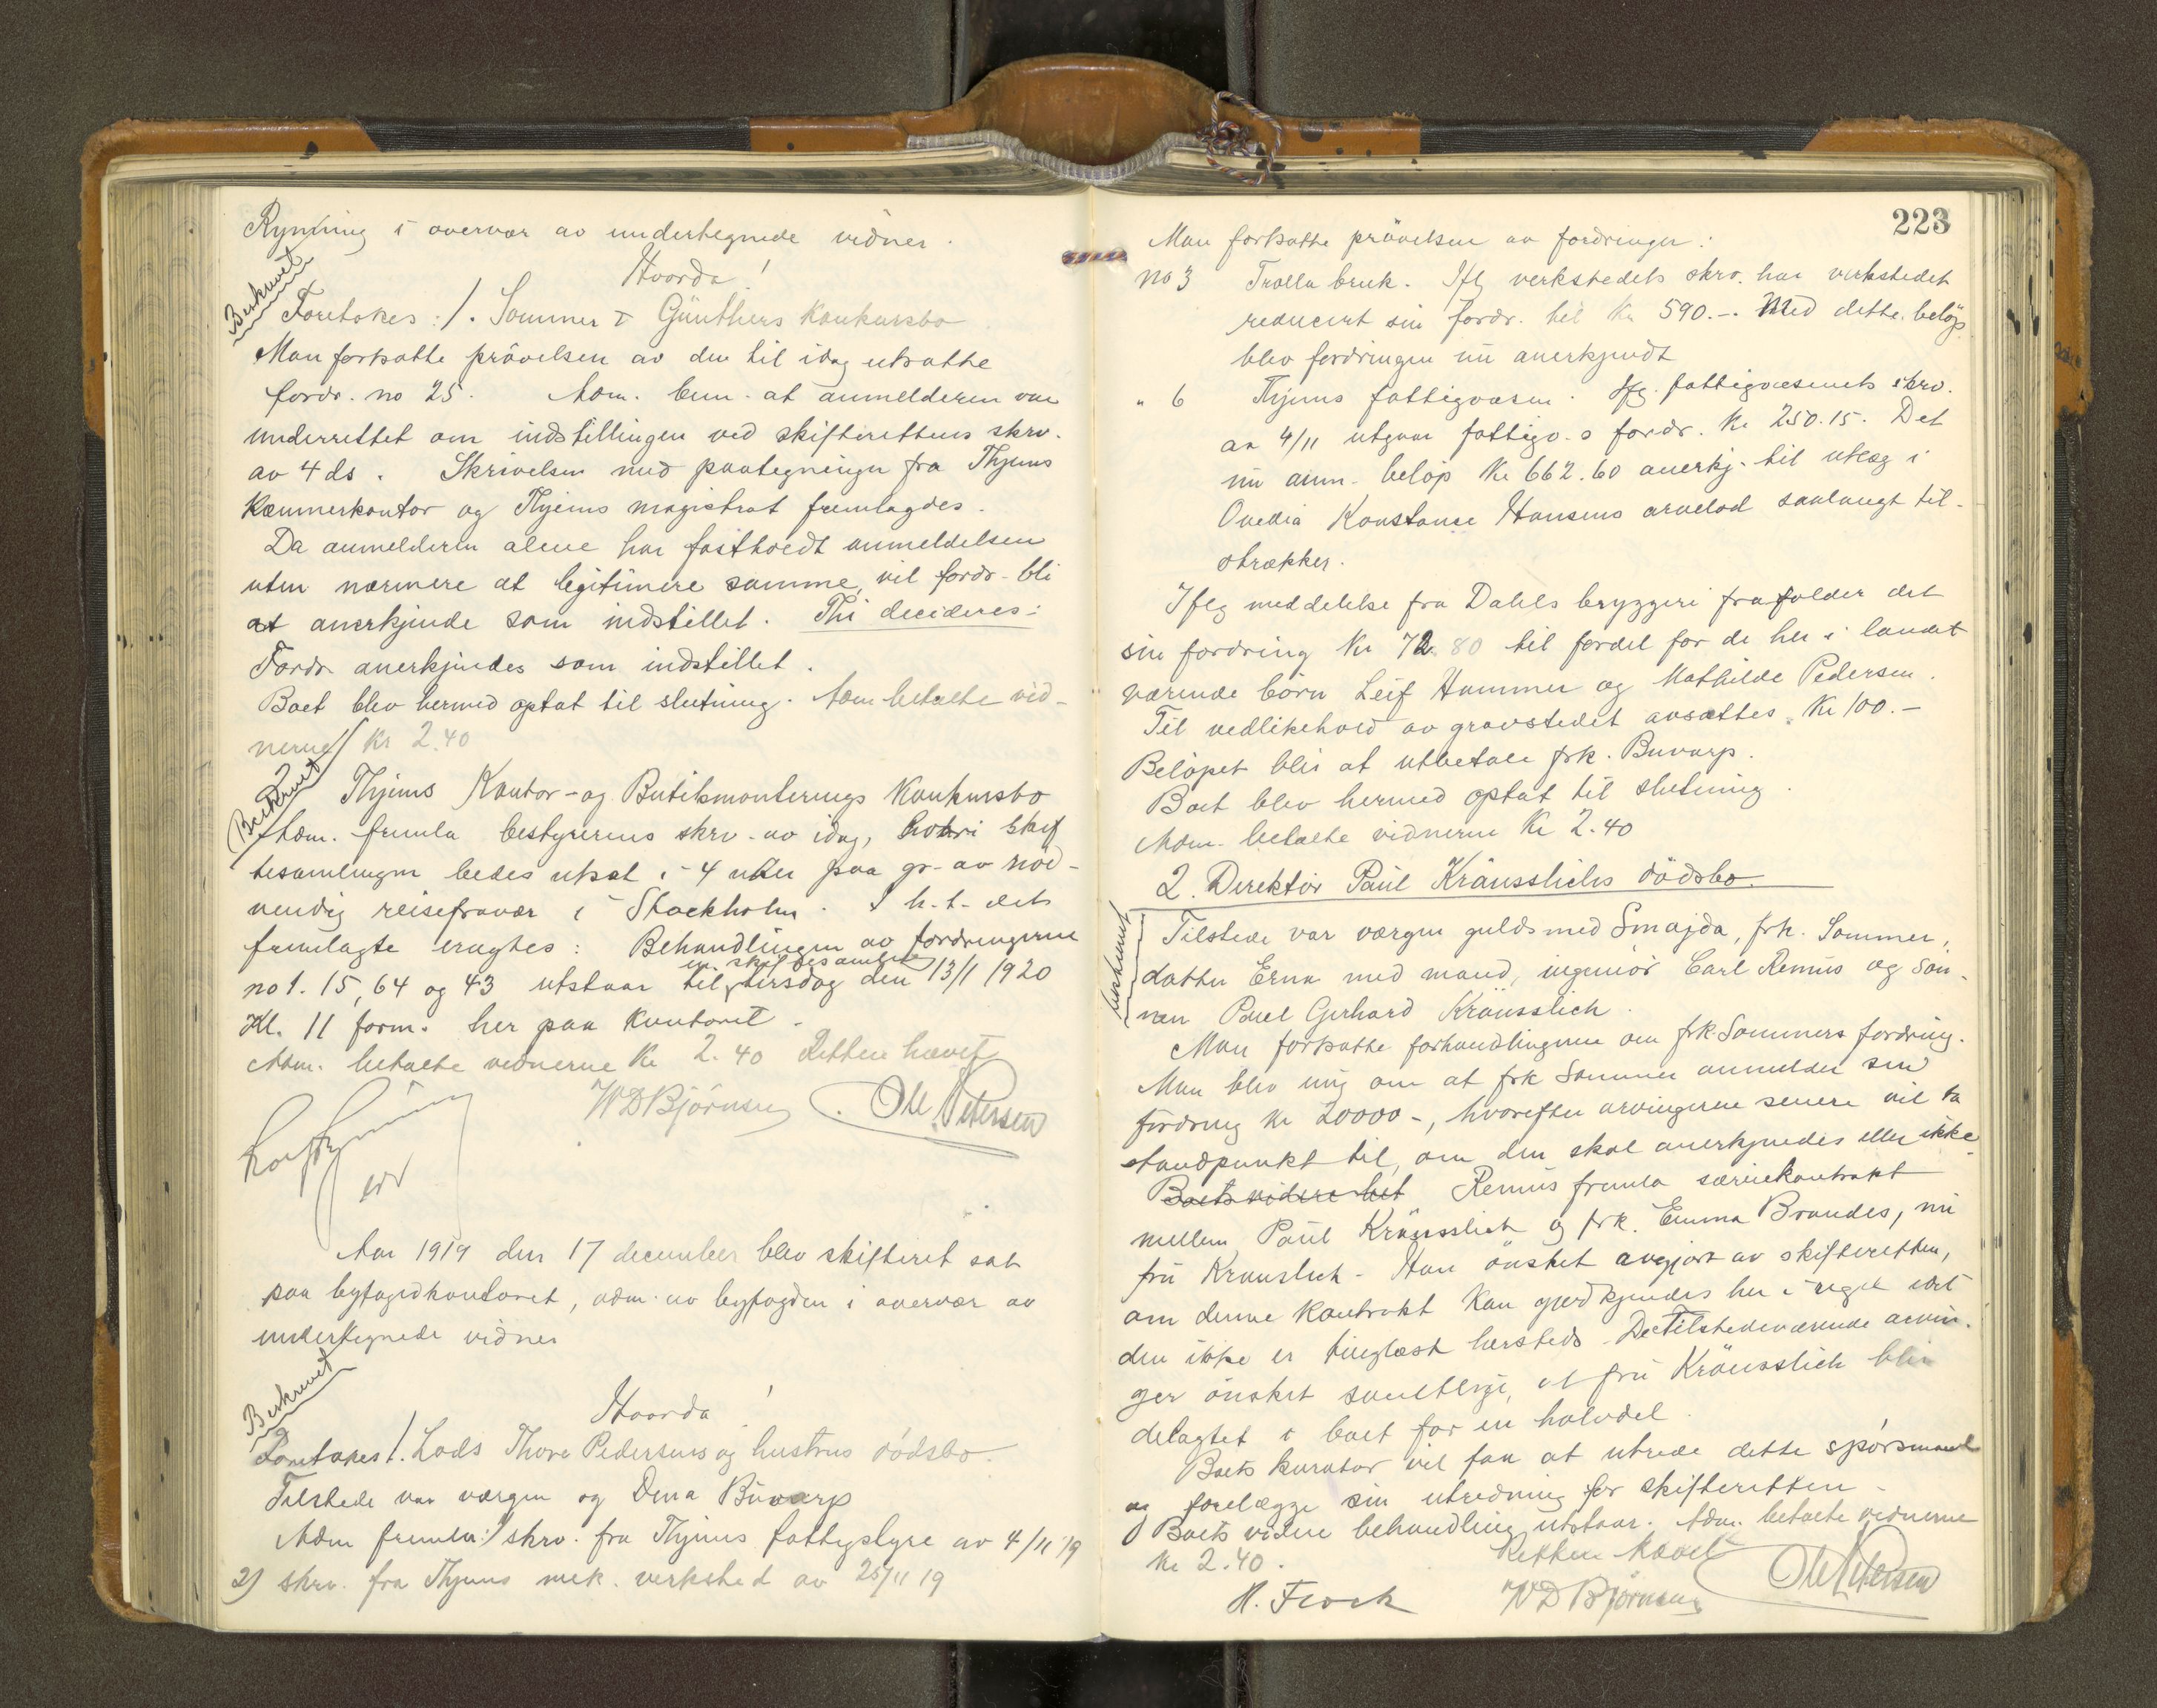 Rynning i overvær av undertegnede vidner.
Hvorda!
Beskrevet
Foretokes: 1. Sommer & Günthers konkursbo
Man fortsatte prövelsen av den til idag utsatte
fordr. no 25. Adm. bem. at anmelderen var
underrettet om indstillingen ved skifterettens skrv.
av 4 ds. Skrivelsen med paategninger fra Thjems
Kæmnerkontor og Thjems magistrat fremlagdes.
Da anmelderen alene har fastholdt anmeldelsen
uten nærmere at legitimere samme, vil fordr. bli
at anerkjende som indstillet. Thi decideres:
Fordr. anerkjendes som indstillet.
Boet blev hermed optat til slutning. Adm. betalte vid-
nerne Kr 2.40
Beskrevet
2 Thjems Kontor- og Butikmonterings Konkursbo
Adm. fremla bestyrerens skrv. av idag, hvori skif
tesamlingen bedes utsat i 4 uker paa gr. av nöd-
vendig reisefravær i Stockholm. I h.t. dets
fremlagte eragtes: Behandlingen av fordringerne
no 1. 15, 64 og 43 utstaar til en skiftesamling tirsdag den 13/1 1920
Kl. 11 form. her paa kontoret.
Adm. betalte vidnerne Kr 2.40 Retten hævet
W D Björnsen Ole Petersen
Aar 1919 den 17 december blev skifteret sat
paa byfogedkontoret, adm. av byfogden i overvær av
undertegnede vidner
Hvorda!
Beskrevet
Foretokes 1. Lods Thore Pedersens og hustrus dödsbo.
Tilstede var værgen og Dina Buvarp
Adm fremla: 1/ skrv. fra Thjems fattigstyre av 4/11 19
2) skrv. fra Thjems mek. verksted av 25/11 19
223
Man fortsatte prövelsen av fordringer:
no 3 Trolla bruk. Iflg verkstedets skrv. har verkstedet
reducert sin fordr. til Kr 590.-. Med dette belöp
blev fordringen nu anerkjendt
" 6 Thjems fattigvæsen. Iflg. fattigvæsenets skrv.
av 4/11 utgjør fattigv.s fordr. Kr 250.15. Det
nu anm. belöp Kr 662.60 anerkj. til utlæg i
Ovedia Konstanse Hansens arvelod saalangt til-
strækker.
Iflg meddelelse fra Dahls bryggeri frafalder det
sin fordring Kr 72.80 til fordel for de her i landet
værende börn Leif Hammer og Mathilde Pedersen.
Til vedlikehold av gravstedet avsættes Kr 100.-
Belöpet blir at utbetale frk. Buvarp.
Boet blev hermed optat til slutning.
Adm. betalte vidnerne Kr 2.40
2. Direktör Paul Kräusslichs dödsbo.
beskrevet
Tilstede var værgen guldsmed Smajda, frk. Sommer,
datter Erna med mand, ingeniör Carl Remus og sön-
nen Paul Gerhard Kräusslich.
Man fortsatte forhandlingerne om frk. Sommers fordring.
Man blev enig om at frk Sommer anmelder sin
fordring Kr 20000-, hvorefter arvingerne senere vil ta
standpunkt til, om den skal anerkjendes eller ikke.
Boets videre beh Remus fremla særeiekontrakt
mellem Paul Kräusslich og frk. Emma Brandes, nu
fru Kräusslich. Han önsket avgjort av skifteretten,
om denne kontrakt kan godkjendes her i riget idet
den ikke er tinglæst hersteds. De tilstedeværende arvin-
ger önsket samtlige, at fru Kräusslich blir
delagtet i boet for en halvdel.
Boets kurator vil faa at utrede dette spörsmaal
og forelægge sin utredning for skifteretten.
Boets videre behandling utstaar. Adm. betalte vidnerne
Kr 2.40. Retten hævet
H. Frock W D Björnsen Ole Petersen